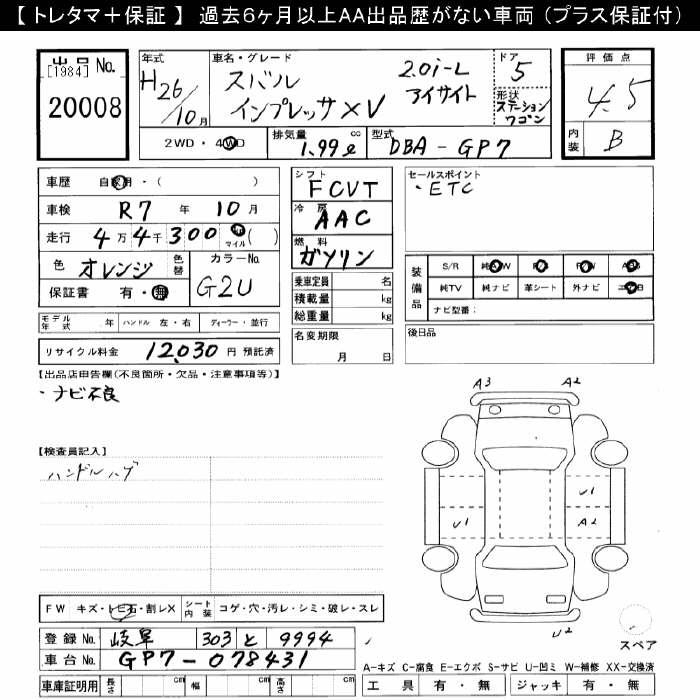 【 トレタマ＋保証 】 過去6ヶ月以上AA出品歴がない車両（プラス保証付）
出品 No.
[1984]
20008
年式
H26/10月
車名・グレード
スバル 2.0i-L
インプレッサXV アイサイト
ドア
5
形状
ステーションワゴン
評価点
4.5
内装
B
2WD・4WD
排気量 cc
1.99ℓ
型式
DBA-GP7
車歴 自家用・（ ）
車検 R7年 10月
走行 4万4千300 ㎞ マイル ( )
色 オレンジ 色替
カラーNo.
G2U
保証書 有・無
シフト
FCVT
冷房
AAC
燃料
ガソリン
乗車定員 名
積載量 kg
総重量 kg
セールスポイント
・ETC
装備品
S/R 純AW P/S P/W ABS
純TV 純ナビ 革シート 外ナビ エアB
ナビ型番：
モデル年式 年 ハンドル 左・右 ディーラー・並行
リサイクル料金 12,030 円 預託済
名変期限
月 日
後日品
【出品店申告欄(不良箇所・欠品・注意事項等)】
・ナビ不良
A3 A2
【検査員記入】
ハンドルハゲ
U1 U1 A2
U2
スペア
FW キズ・トビ石・割レX シート内装 コゲ・穴・汚レ・シミ・破レ・スレ
登録 No. 岐阜 303 と 9994
車台 No. GP7-078431
A-キズ C-腐食 E-エクボ S-サビ U-凹ミ W-補修 XX-交換済
車庫証明用 長さ cm 幅 cm 高さ cm
工具 有・無 ジャッキ 有・無